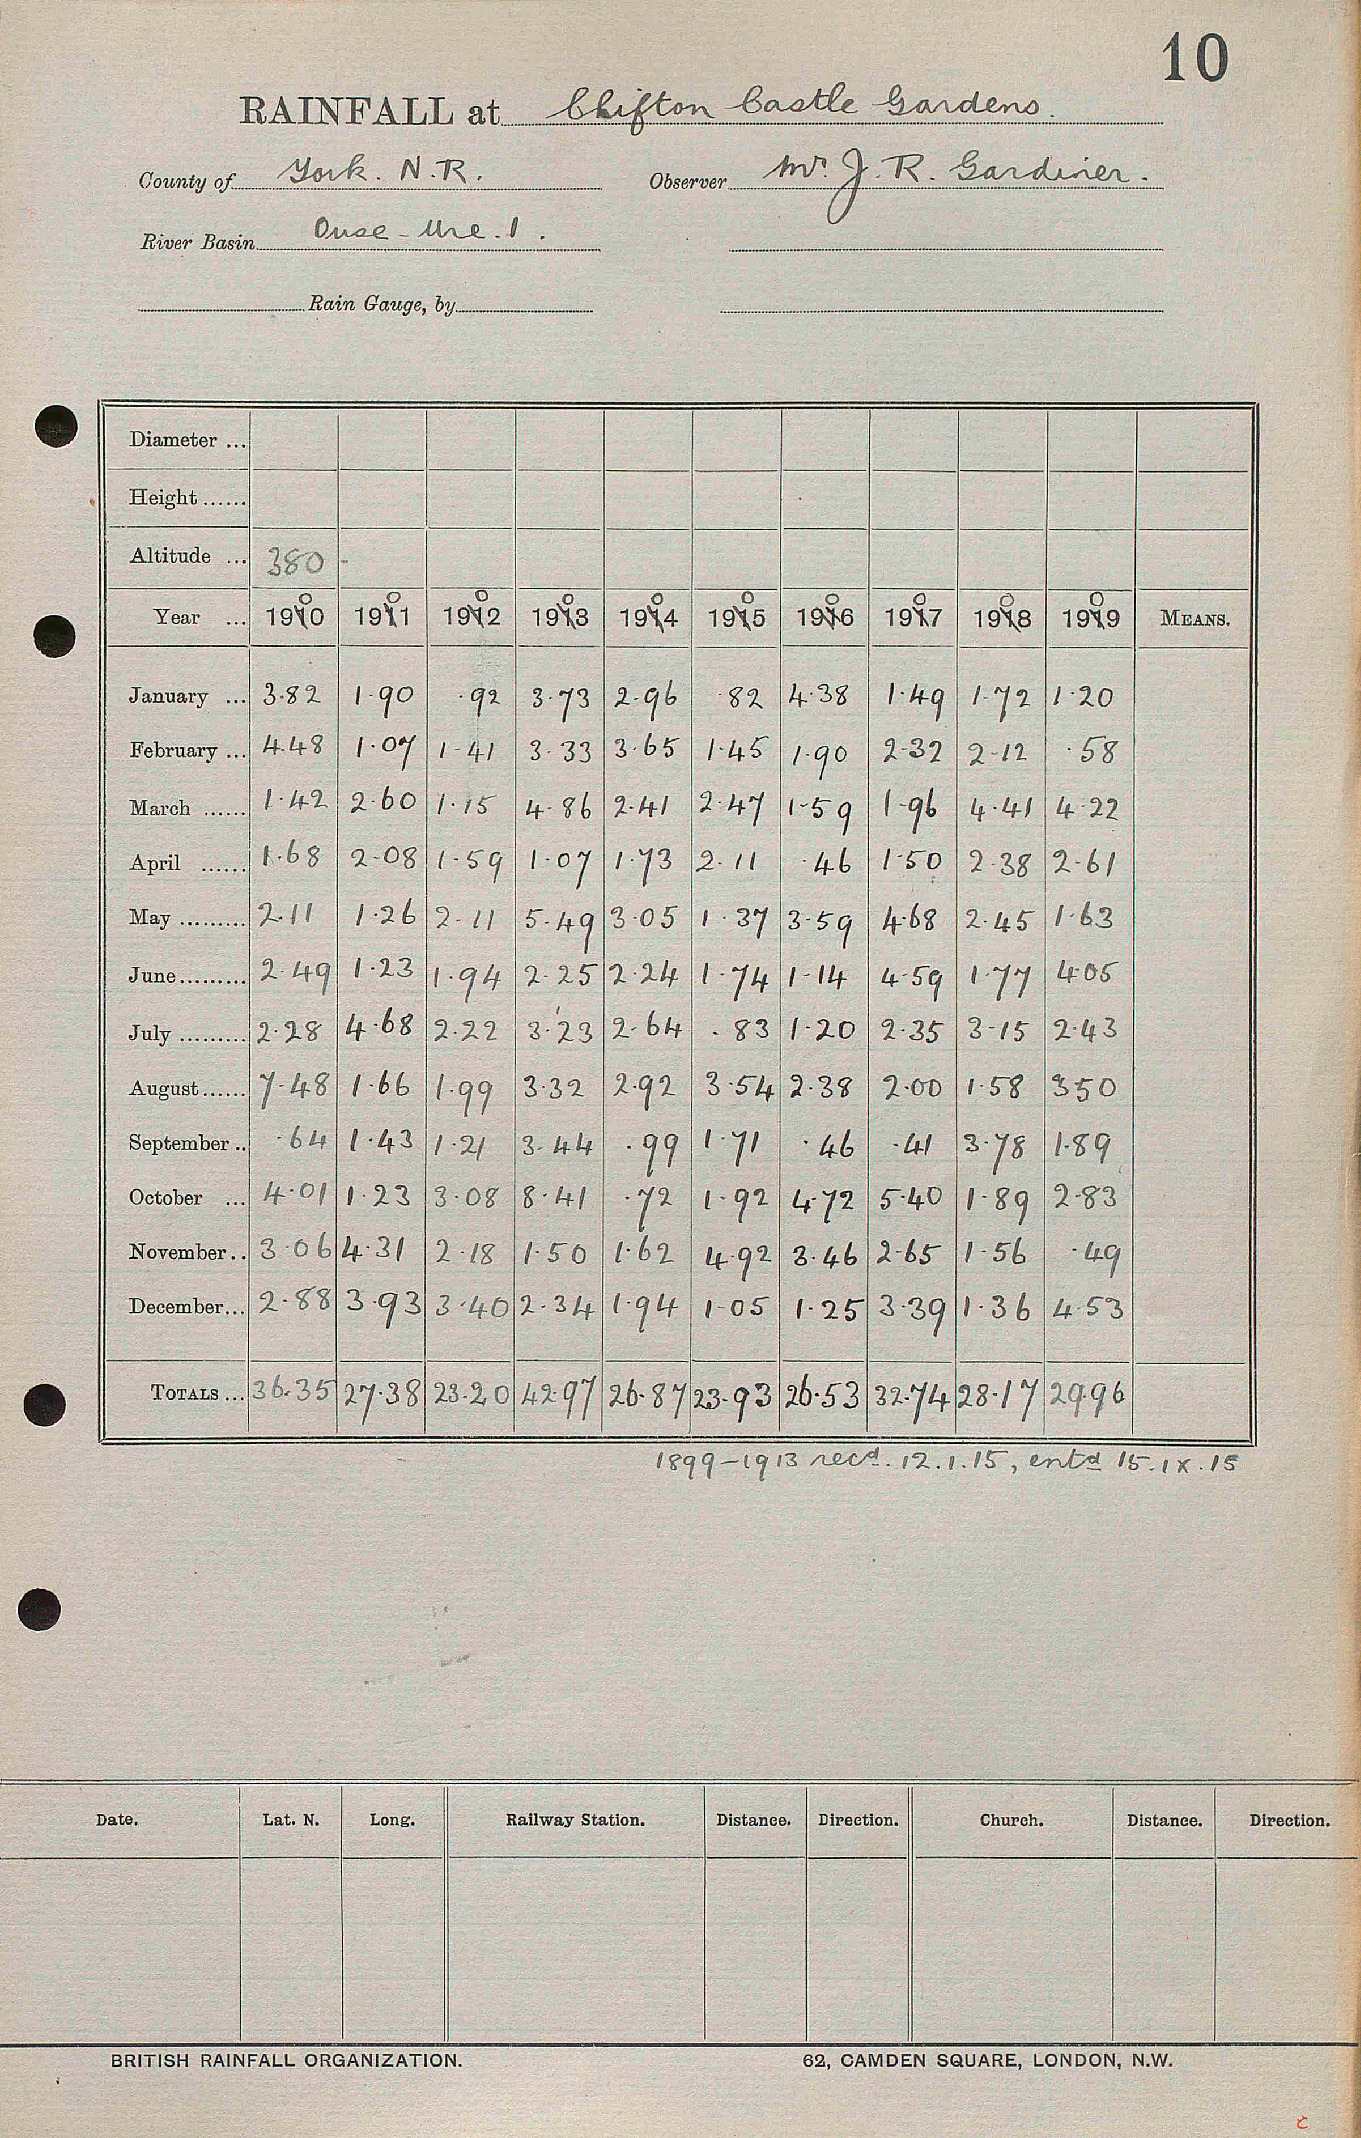 10
RAINFALL at Clifton Castle Gardens.
County of York. N.R. Observer Mr. J. R. Gardiner.
River Basin Ouse - Ure. 1.
Rain Gauge, by
Diameter ...
Height ......
Altitude ... 380 -
0 0 0 0 0 0 0 0 0
Year ... 1910 1911 1912 1913 1914 1915 1916 1917 1918 1919 MEANS.
January ... 3.82 1.90 .92 3.73 2.96 .82 4.38 1.49 1.72 1.20
February ... 4.48 1.07 1.41 3.33 3.65 1.45 1.90 2.32 2.12 .58
March ...... 1.42 2.60 1.15 4.86 2.41 2.47 1.59 1.96 4.41 4.22
April ...... 1.68 2.08 1.59 1.07 1.73 2.11 .46 1.50 2.38 2.61
May ......... 2.11 1.26 2.11 5.49 3.05 1.37 3.59 4.68 2.45 1.63
June ......... 2.49 1.23 1.94 2.25 2.24 1.74 1.14 4.59 1.77 4.05
July ......... 2.28 4.68 2.22 3.23 2.64 .83 1.20 2.35 3.15 2.43
August ...... 7.48 1.66 1.99 3.32 2.92 3.54 2.38 2.00 1.58 3.50
September .. .64 1.43 1.21 3.44 .99 1.71 .46 .41 3.78 1.89
October ... 4.01 1.23 3.08 8.41 .72 1.92 4.72 5.40 1.89 2.83
November .. 3.06 4.31 2.18 1.50 1.62 4.92 3.46 2.65 1.56 .49
December ... 2.88 3.93 3.40 2.34 1.94 1.05 1.25 3.39 1.36 4.53
TOTALS ... 36.35 27.38 23.20 42.97 26.87 23.93 26.53 32.74 28.17 29.96
1899-1913 recd. 12.1.15, entd 15.IX.15
Date. Lat. N. Long. Railway Station. Distance. Direction. Church. Distance. Direction.
BRITISH RAINFALL ORGANIZATION. 62, CAMDEN SQUARE, LONDON, N.W.
c